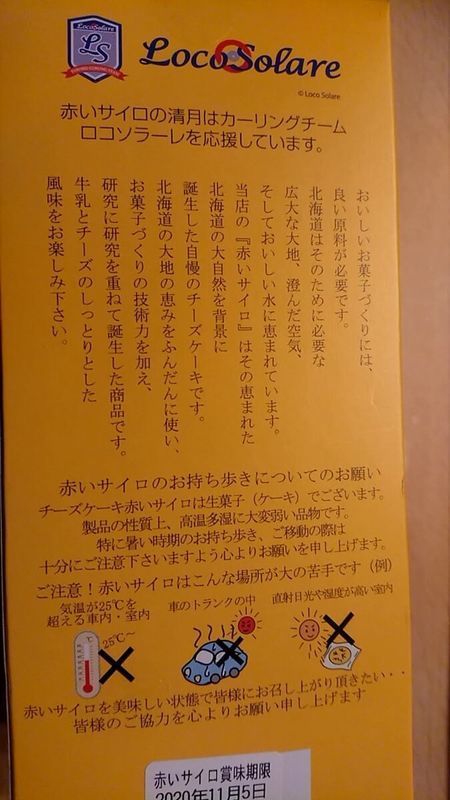 LocoSolare
LS
Loco Solare
© Loco Solare
赤いサイロの清月はカーリングチーム
ロコソラーレを応援しています。
おいしいお菓子づくりには、
良い原料が必要です。
北海道はそのために必要な
広大な大地、澄んだ空気、
そしておいしい水に恵まれています。
当店の『赤いサイロ』はその恵まれた
北海道の大自然を背景に
誕生した自慢のチーズケーキです。
北海道の大地の恵みをふんだんに使い、
お菓子づくりの技術力を加え、
研究に研究を重ねて誕生した商品です。
牛乳とチーズのしっとりとした
風味をお楽しみ下さい。
赤いサイロのお持ち歩きについてのお願い
チーズケーキ赤いサイロは生菓子（ケーキ）でございます。
製品の性質上、高温多湿に大変弱い品物です。
特に暑い時期のお持ち歩き、ご移動の際は
十分にご注意下さいますよう心よりお願いを申し上げます。
ご注意！赤いサイロはこんな場所が大の苦手です（例）
気温が25℃を
超える車内・室内
車のトランクの中
直射日光や湿度が高い室内
℃
25℃〜
赤いサイロを美味しい状態で皆様にお召し上がり頂きたい・・
皆様のご協力を心よりお願い申し上げます
赤いサイロ賞味期限
2020年11月5日